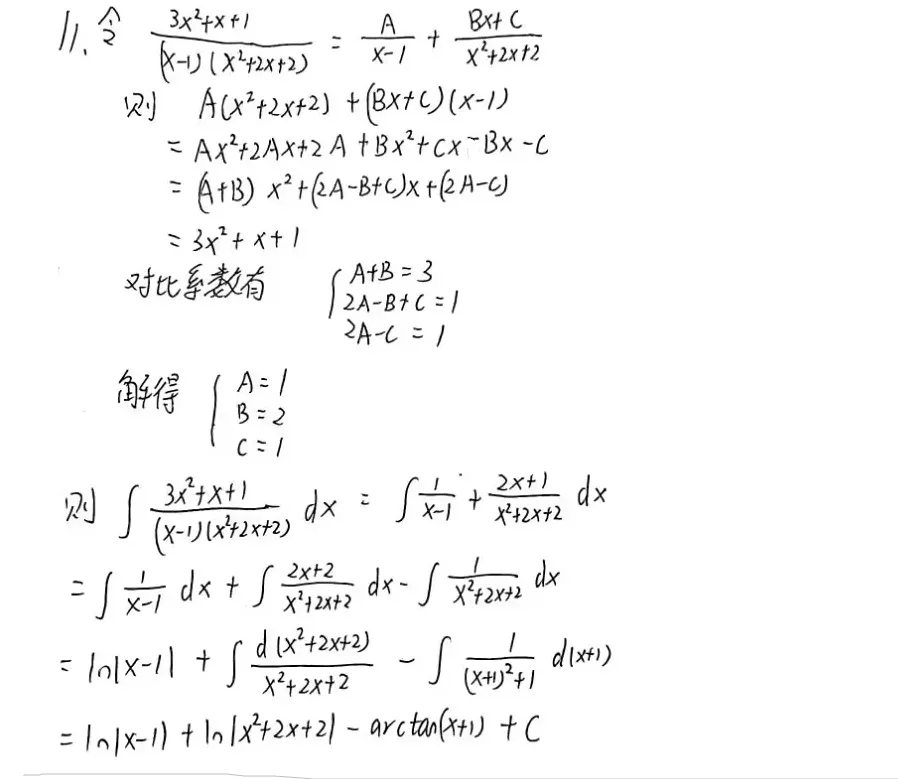 11. 令 (3x²+x+1)/((x-1)(x²+2x+2)) = A/(x-1) + (Bx+C)/(x²+2x+2)
则 A(x²+2x+2) + (Bx+C)(x-1)
= Ax²+2Ax+2A+Bx²+Cx-Bx-C
= (A+B)x²+(2A-B+C)x+(2A-C)
= 3x²+x+1
对比系数有 { A+B=3
2A-B+C=1
2A-C=1
解得 { A=1
B=2
C=1
则 ∫ (3x²+x+1)/((x-1)(x²+2x+2)) dx = ∫ 1/(x-1) + (2x+1)/(x²+2x+2) dx
= ∫ 1/(x-1) dx + ∫ (2x+2)/(x²+2x+2) dx - ∫ 1/(x²+2x+2) dx
= ln|x-1| + ∫ d(x²+2x+2)/(x²+2x+2) - ∫ 1/((x+1)²+1) d(x+1)
= ln|x-1| + ln|x²+2x+2| - arctan(x+1) + C